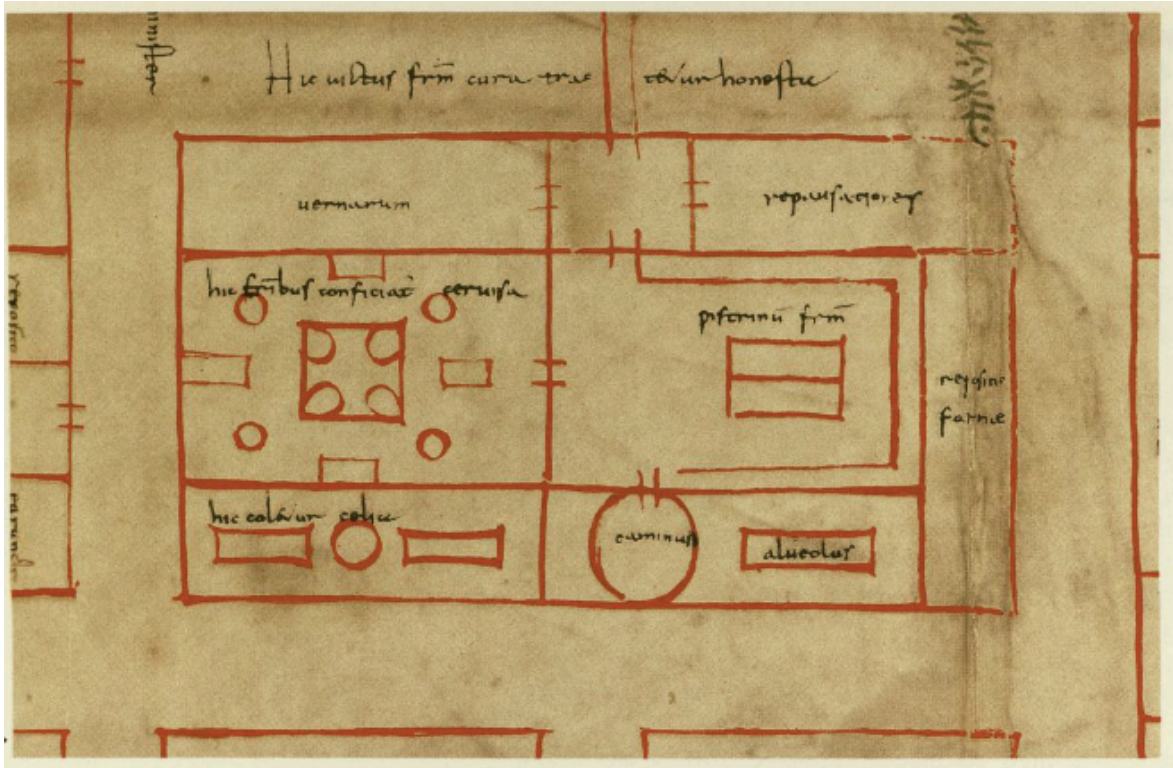 Hic uictus frm̄ cura trac tetur honeste
uernarum
repausationes
hic fr̄ibus conficiat ceruisa
pistrinū frm̄
farinæ
hic coletur celia
caminus
alueolus